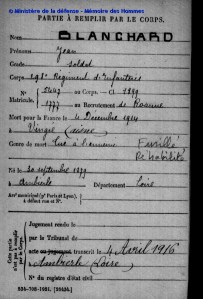 © Ministère de la défense - Mémoire des Hommes
PARTIE À REMPLIR PAR LE CORPS.
Nom BLANCHARD
Prénoms Jean
Grade soldat
298e Régiment d'Infanterie
N° Matricule. au Corps. — Cl. 1899
1777 au Recrutement de Roanne
Mort pour la France le 4 Décembre 1914
à Vingré (Aisne)
Genre de mort Tué à l'ennemi Fusillé
Réhabilité
Né le 30 septembre 1879
à Ambierle Département Loire
Arr' municipal (p' Paris et Lyon),
à défaut rue et N°.
Cette partie n'est pas à remplir par le Corps.
Jugement rendu le
par le Tribunal de
acte ou jugement transcrit le 4 Avril 1916
à Ambierle Loire
N° du registre d'état civil